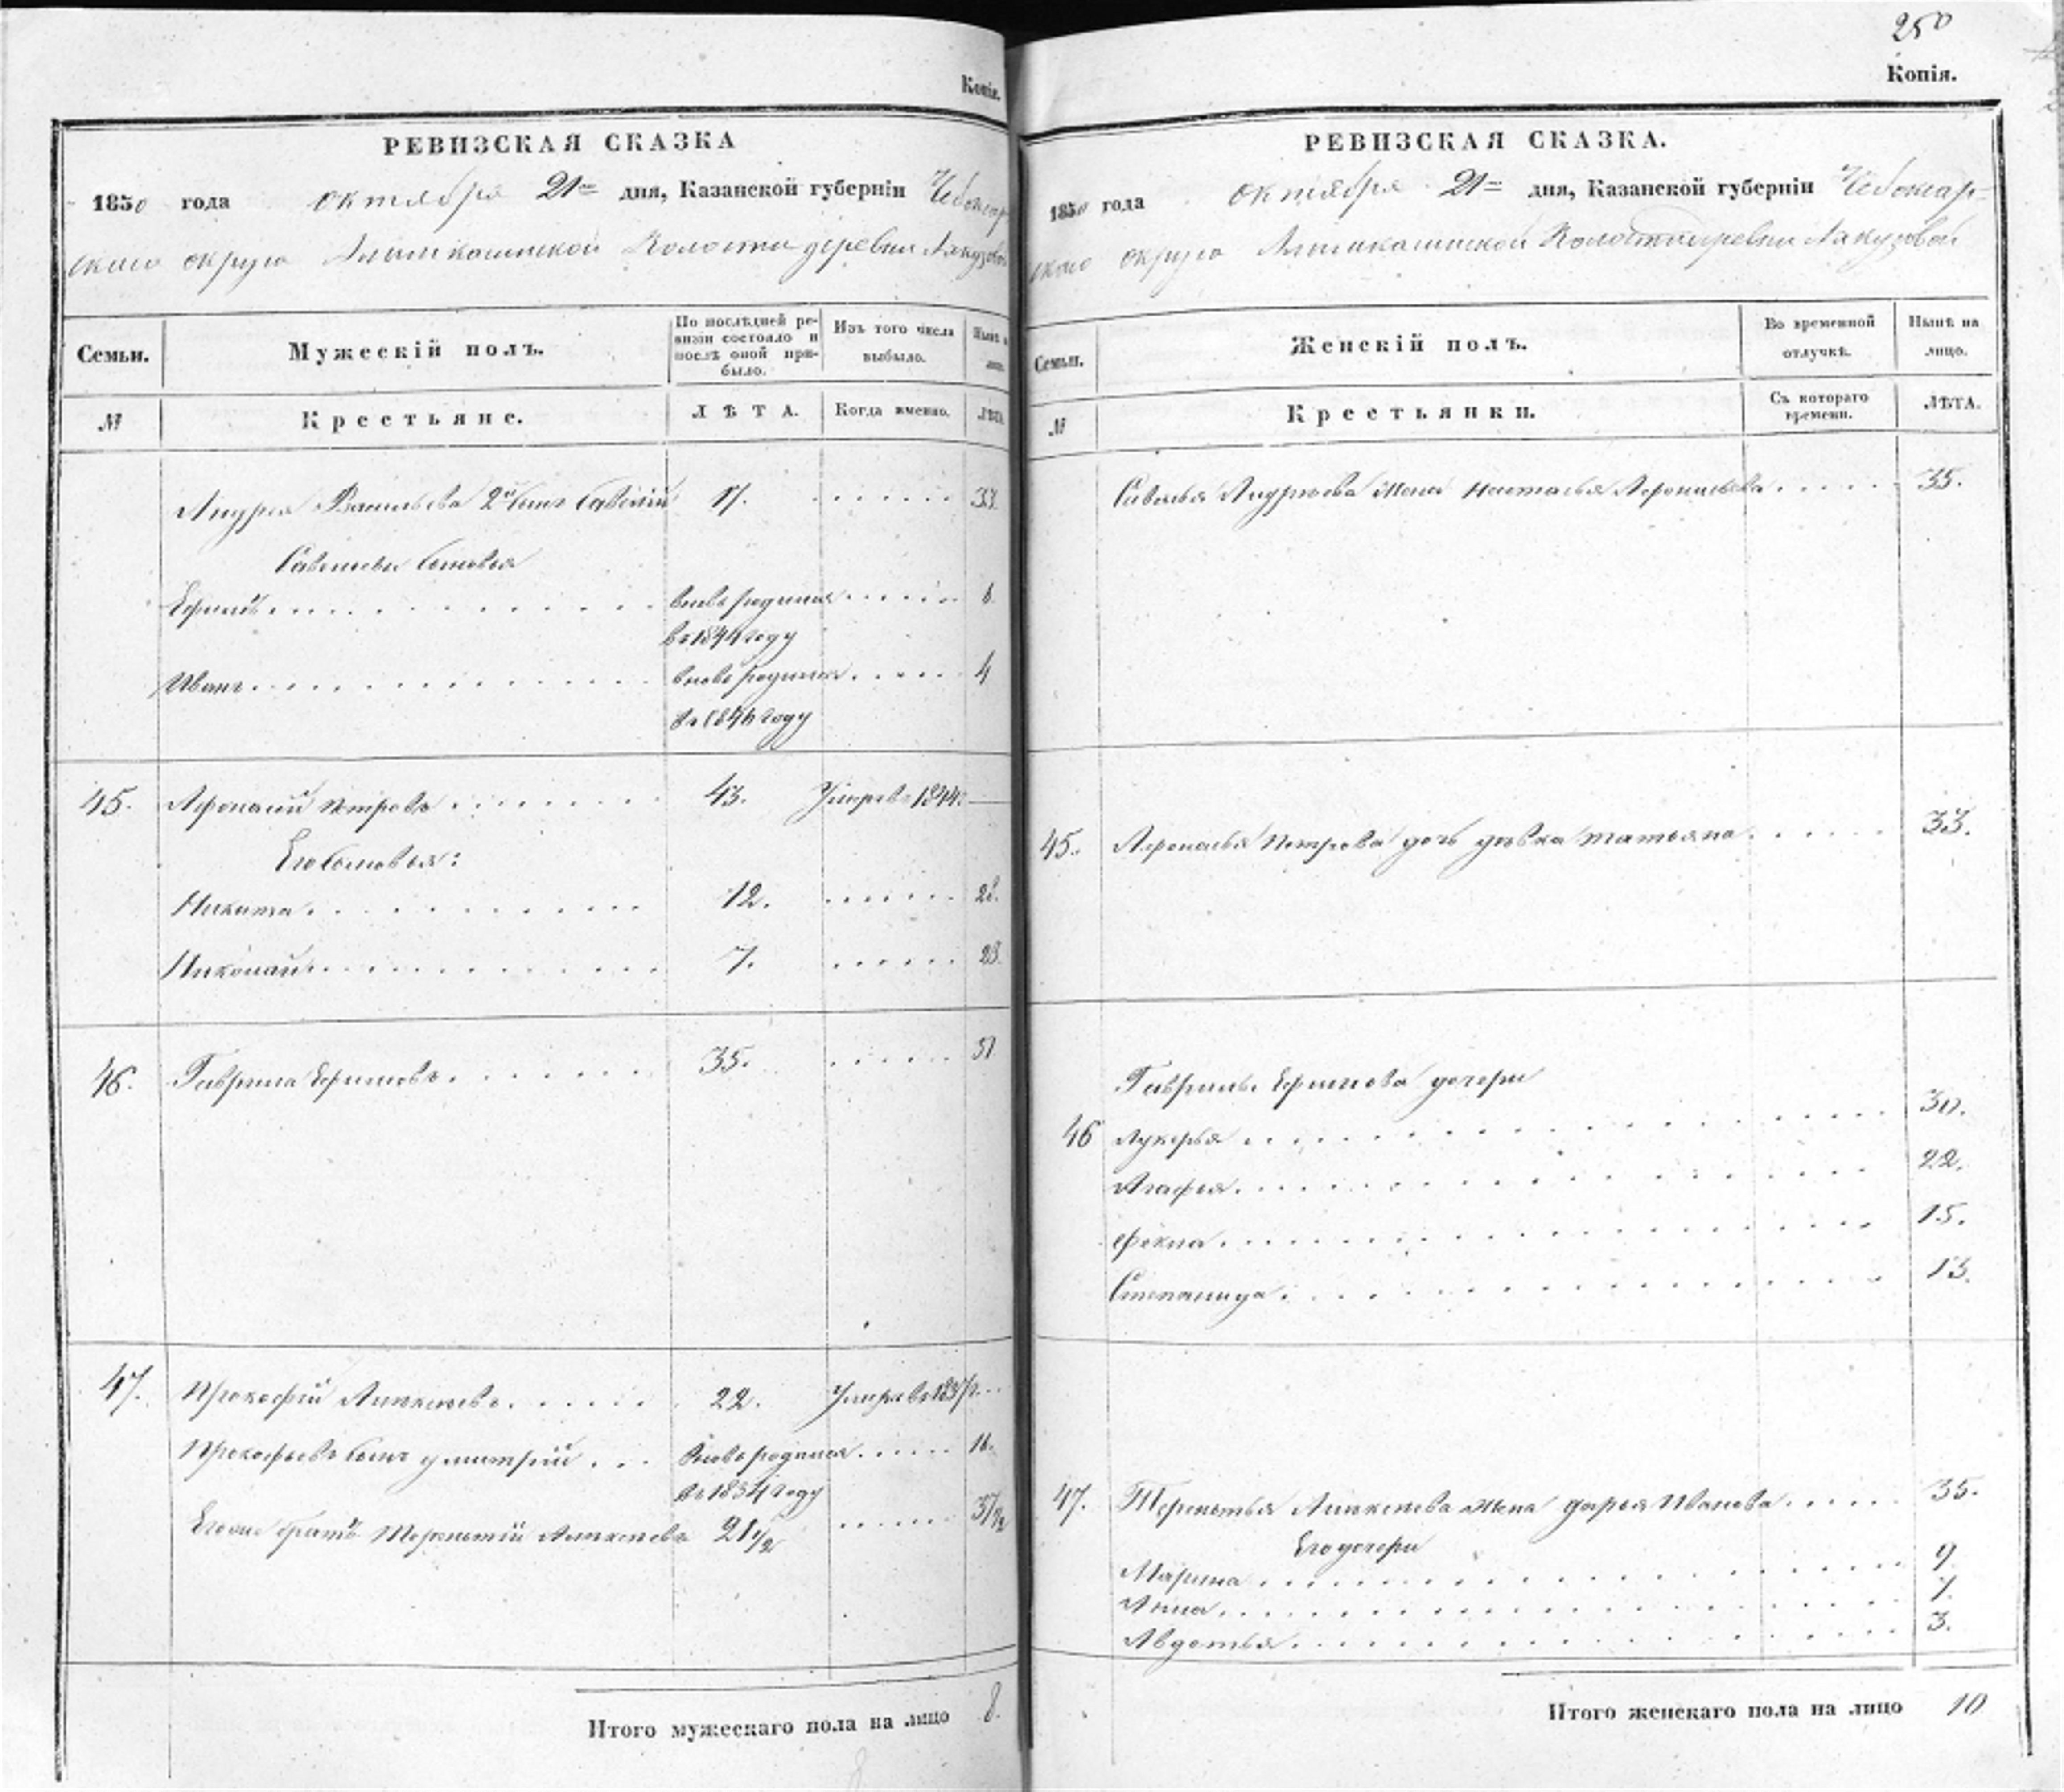 Копія.
РЕВИЗСКАЯ СКАЗКА
1850 года октября 21го дня, Казанской губерніи Чебоксар
скаго округа волости деревни
Семьи. Мужескій полъ. По послѣдней ре-визіи состояло и послѣ оной при-было. Изъ того числа выбыло. Нынѣ
№ Крестьяне. ЛѢТА. Когда именно. ЛѢТА.
Андрея Васильева 2й сынъ Савелій 17. 33
Савельевы сыновья
Ефимъ вновь родился 6
въ 1844 году
Иванъ вновь родился 4
въ 1846 году
45. Афонасій Петровъ 43. Умеръ въ 1844:
Его сыновья:
Никита 12. 28.
Николай 7. 23.
46. Гаврила Ефимовъ 35. 51
47. Прокофій Алексѣевъ 22. Умеръ въ
Прокофьевъ сынъ Дмитрій вновь родился 16.
въ 1834 году
Его же братъ Терентій Алексѣевъ 21 1/2 37 1/2
Итого мужескаго пола на лицо 8.
250
Копія.
РЕВИЗСКАЯ СКАЗКА.
1850 года октября 21го дня, Казанской губерніи Чебоксар-
скаго округа волости деревни
Семьи. Женскій полъ. Во временной отлучкѣ. Нынѣ на лицо.
№ Крестьянки. Съ котораго времени. ЛѢТА.
Савелья Андрѣева жена Настасья Афонасьева 35.
45. Афонасья Петрова дочь дѣвка Татьяна 33.
Гаврилы Ефимова дочери
46 Лукерья 30.
Агафья 22.
Фекла 15.
Степанида 13.
47. Терентья Алексѣева жена Дарья Иванова 35.
Его дочери
Марина 9
Анна 7.
Авдотья 3.
Итого женскаго пола на лицо 10